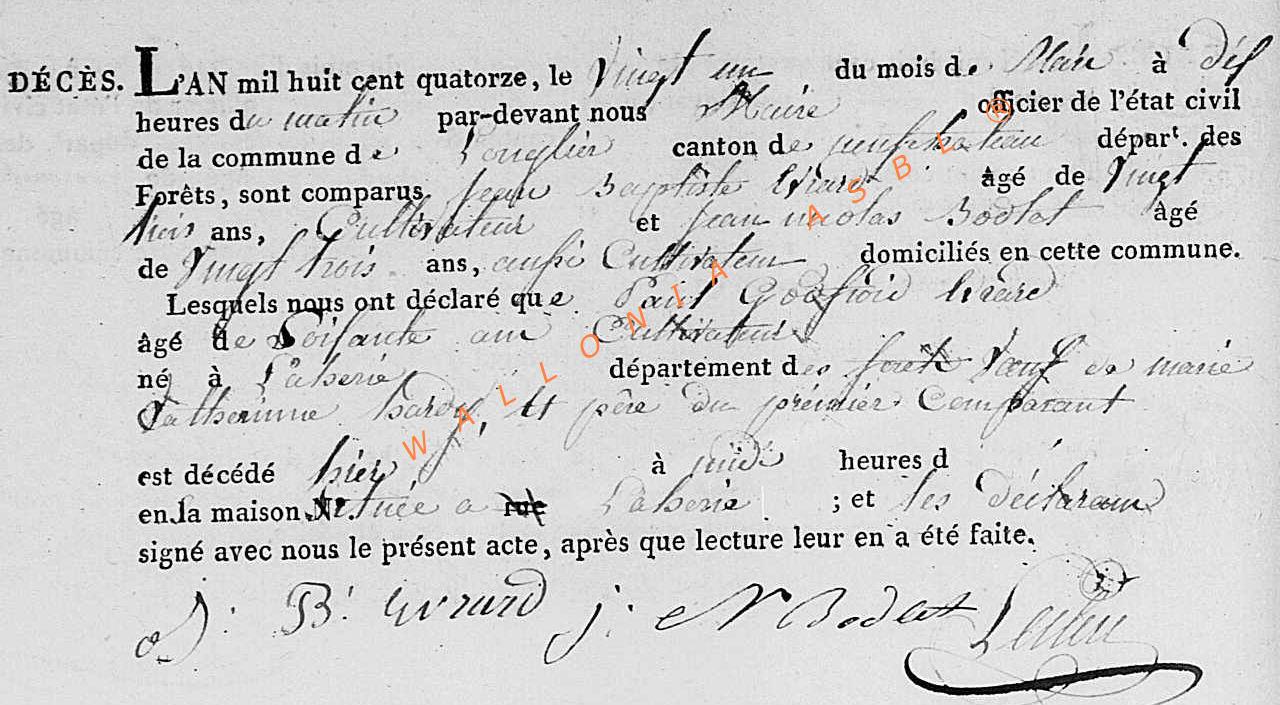 DÉCÈS. L'AN mil huit cent quatorze, le Vingt un du mois de Mai à dix
heures du matin par-devant nous Maire officier de l'état civil
de la commune de Longlier canton de neufchateau dépar<sup>t</sup>. des
Forêts, sont comparus Jean Baptiste Girard âgé de Vingt
trois ans, Cultivateur et jean nicolas Bodlet âgé
de Vingt trois ans, aussi Cultivateur domiciliés en cette commune.
Lesquels nous ont déclaré que Godfroid Girard
âgé de Soisante ans Cultivateur
né à Laherie département des foret Vœuf de marie
Catherinne hardy, et père du prémier Comparant
est décédé hier à midi heures d
en la maison N°. située a rue Laherie ; et les déclarans
signé avec nous le présent acte, après que lecture leur en a été faite.
J: B: Girard j: N Bodlet
WALLONIA ASBL ®